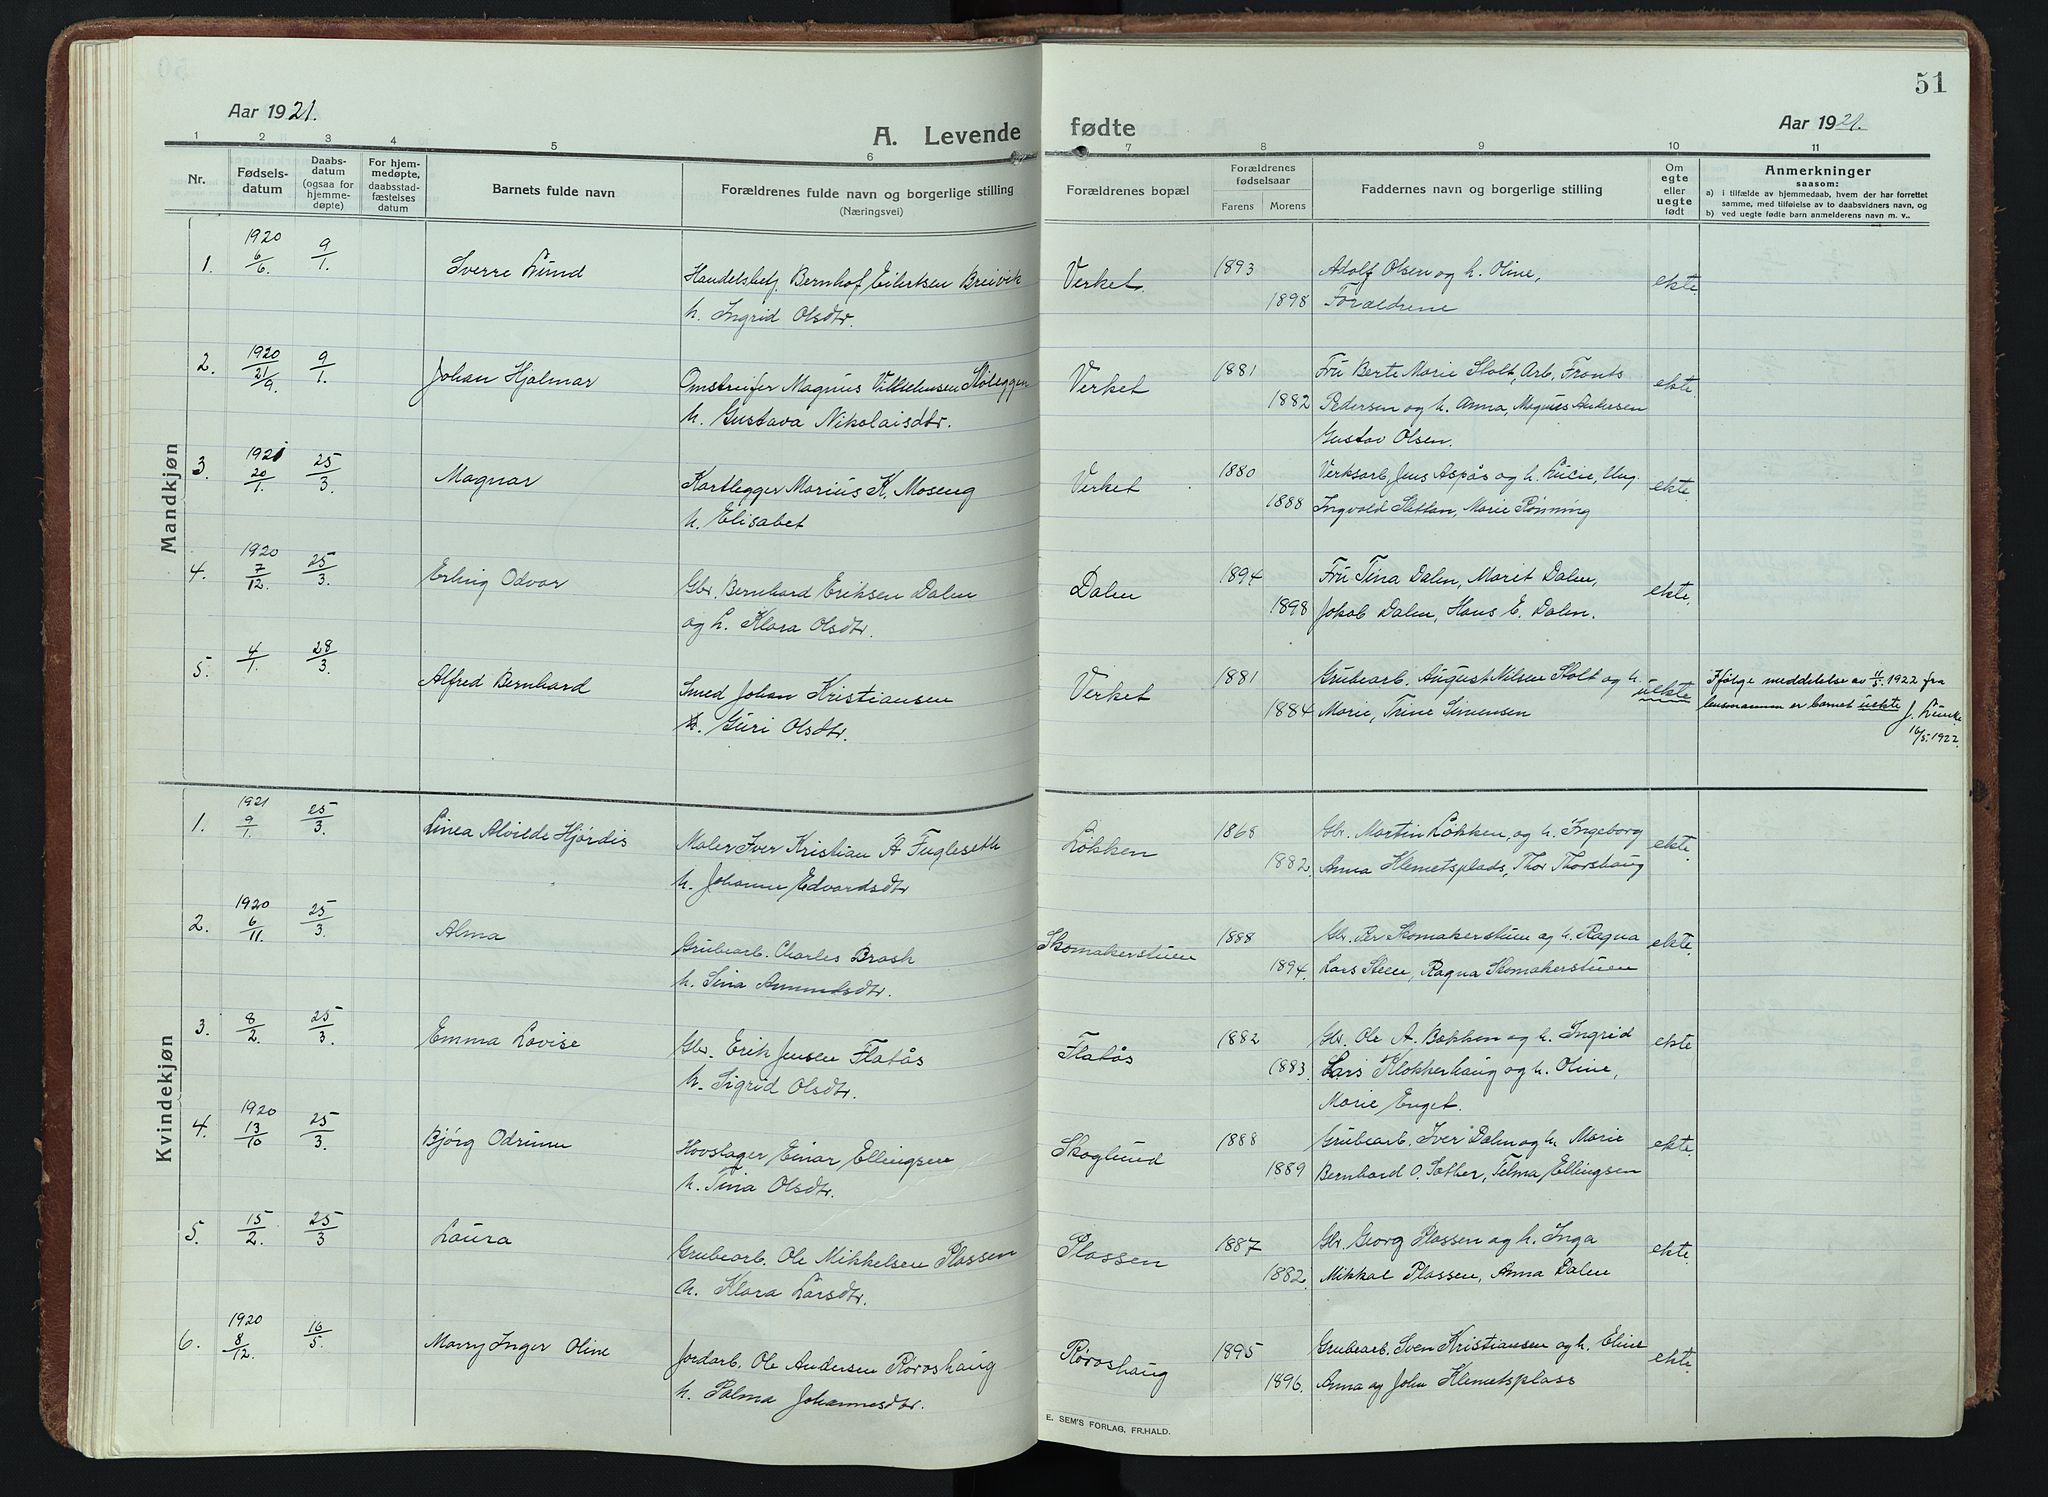 Aar 1921.
A. Levende fødte
51
Aar 1921.
1 2 3 4 5 6 7 8 9 10 11
Nr.
Fødsels-
datum
Daabs-
datum
(ogsaa for
hjemme-
døpte)
For hjem-
medøpte,
daabsstad-
fæstelses
datum
Barnets fulde navn
Forældrenes fulde navn og borgerlige stilling
(Næringsvei)
Forældrenes bopæl
Forældrenes
fødselsaar
Farens Morens
Faddernes navn og borgerlige stilling
Om
egte
eller
uegte
født
Anmerkninger
saasom:
a) i tilfælde av hjemmedaab, hvem der har forrettet
samme, med tilføielse av to daabsvidners navn, og
b) ved uegte fødte barn anmelderens navn m. v..
Mandkjøn
1. 1920 6/6. 9/1. Sverre Lund
Handelsbetj. Bernhof Eilertsen Breivik
h. Ingrid Olsdtr.
Verket.
1893
1898
Adolf Olsen og h. Oline,
Forældrene
ekte.
2. 1920 21/9. 9/1. Johan Hjalmar
Omstreifer Magnus Vilhelmsen
h. Gustava Nikolaisdtr.
Verket
1881
1882
Fru Berte Marie Stolt, Arb. Fronts
Pedersen og h. Anna, Magnus Andersen
Gustav Olsen.
ekte.
3. 1921 20/1. 25/3. Magnar
Kartlegger Marius K. Moseng
h. Elisabet
Verket
1880
1888
Verksarb. Jens Aspås og h. Lucie, Ung.
Ingvald Slettan, Marie Rønning
ekte.
4. 1920 7/12. 25/3. Erling Odvar
Gbr. Bernhard Eriksen Dalen
og h. Klara Olsdtr.
Dalen
1894
1898
Fru Tina Dalen, Marit Dalen,
Jakob Dalen, Hans E. Dalen.
ekte.
5. 4/1. 28/3. Alfred Bernhard
Smed Johan Kristiansen
h. Guri Olsdtr.
Verket
1881
1884
Grubearb. August Nilsen Stolt og h.
Marie, Trine Simensen
uekte
Ifølge meddelelse av 11/5.1922 fra
lensmannen er barnet uekte J.
16/5.1922.
Kvindekjøn
1. 1921 9/1. 25/3. Linea Alvilde Hjørdis
Maler Iver Kristian A Fugleseth
h. Johanne Edvardsdtr
Løkken
1868
1882.
Gbr. Martin Løkken, og h. Ingeborg
Anna Klemetsplads, Thor Thorshaug
ekte.
2. 1920 6/11. 25/3. Alma
Grubearb. Charles Brask
h. Sina Amundsdtr.
Skomakerstuen
1888
1894.
Gbr. Per Skomakerstuen og h. Ragna
Lars Steen, Ragna Skomakerstuen
ekte.
3. 8/2. 25/3. Emma Lovise
Gbr. Erik Jensen Flatås
h. Sigrid Olsdtr.
Flatås
1882
1883.
Gbr. Ole A. Bakken og h. Ingrid
Lars Klokkerhaug og h. Oline,
Marie Enget.
ekte
4. 1920 13/10 25/3. Bjørg Odrunn
Hovslager Einar Ellingsen
h. Tina Olsdtr.
Skoglund
1888
1889
Grubearb. Iver Dalen og h. Marie
Bernhard O. Sæther, Telma Ellingsen
ekte.
5. 15/2. 25/3 Laura
Grubearb. Ole Mikkelsen Plassen
h. Klara Larsdtr.
Plassen
1887
1882.
Gbr. Georg Plassen og h. Inga
Mikkal Plassen, Anna Dalen
ekte.
6. 1920 8/12. 16/5. Marry Inger Oline
Jordarb. Ole Andersen Røroshaug
h. Salma Johannesdtr.
Røroshaug
1895
1896.
Grubearb. Sven Kristiansen og h. Eline
Anna og John Klemetsplass
ekte.
E. SEM'S FORLAG, FR.HALD.